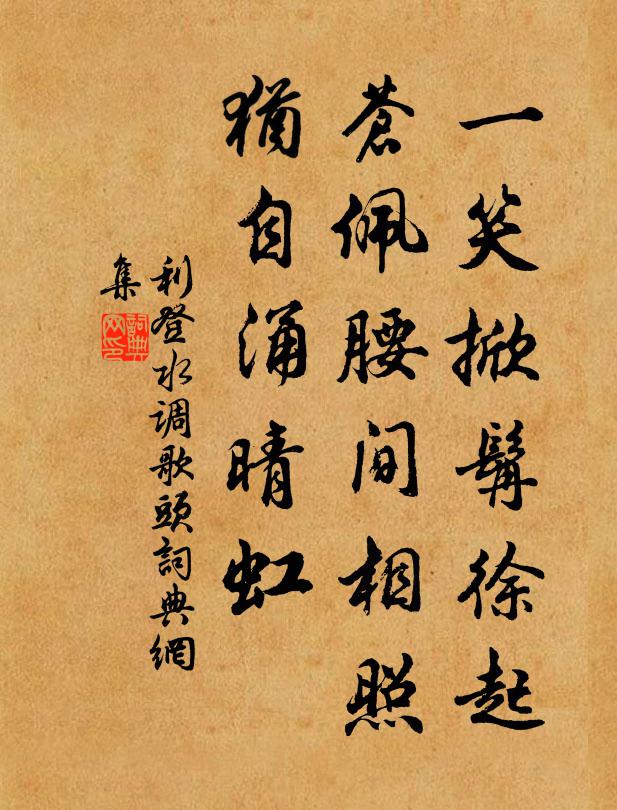 一笑掀髯徐起
蒼佩腰间相照
猶自涌晴虹
利登水调歌頭詞典網
集
詞典网印